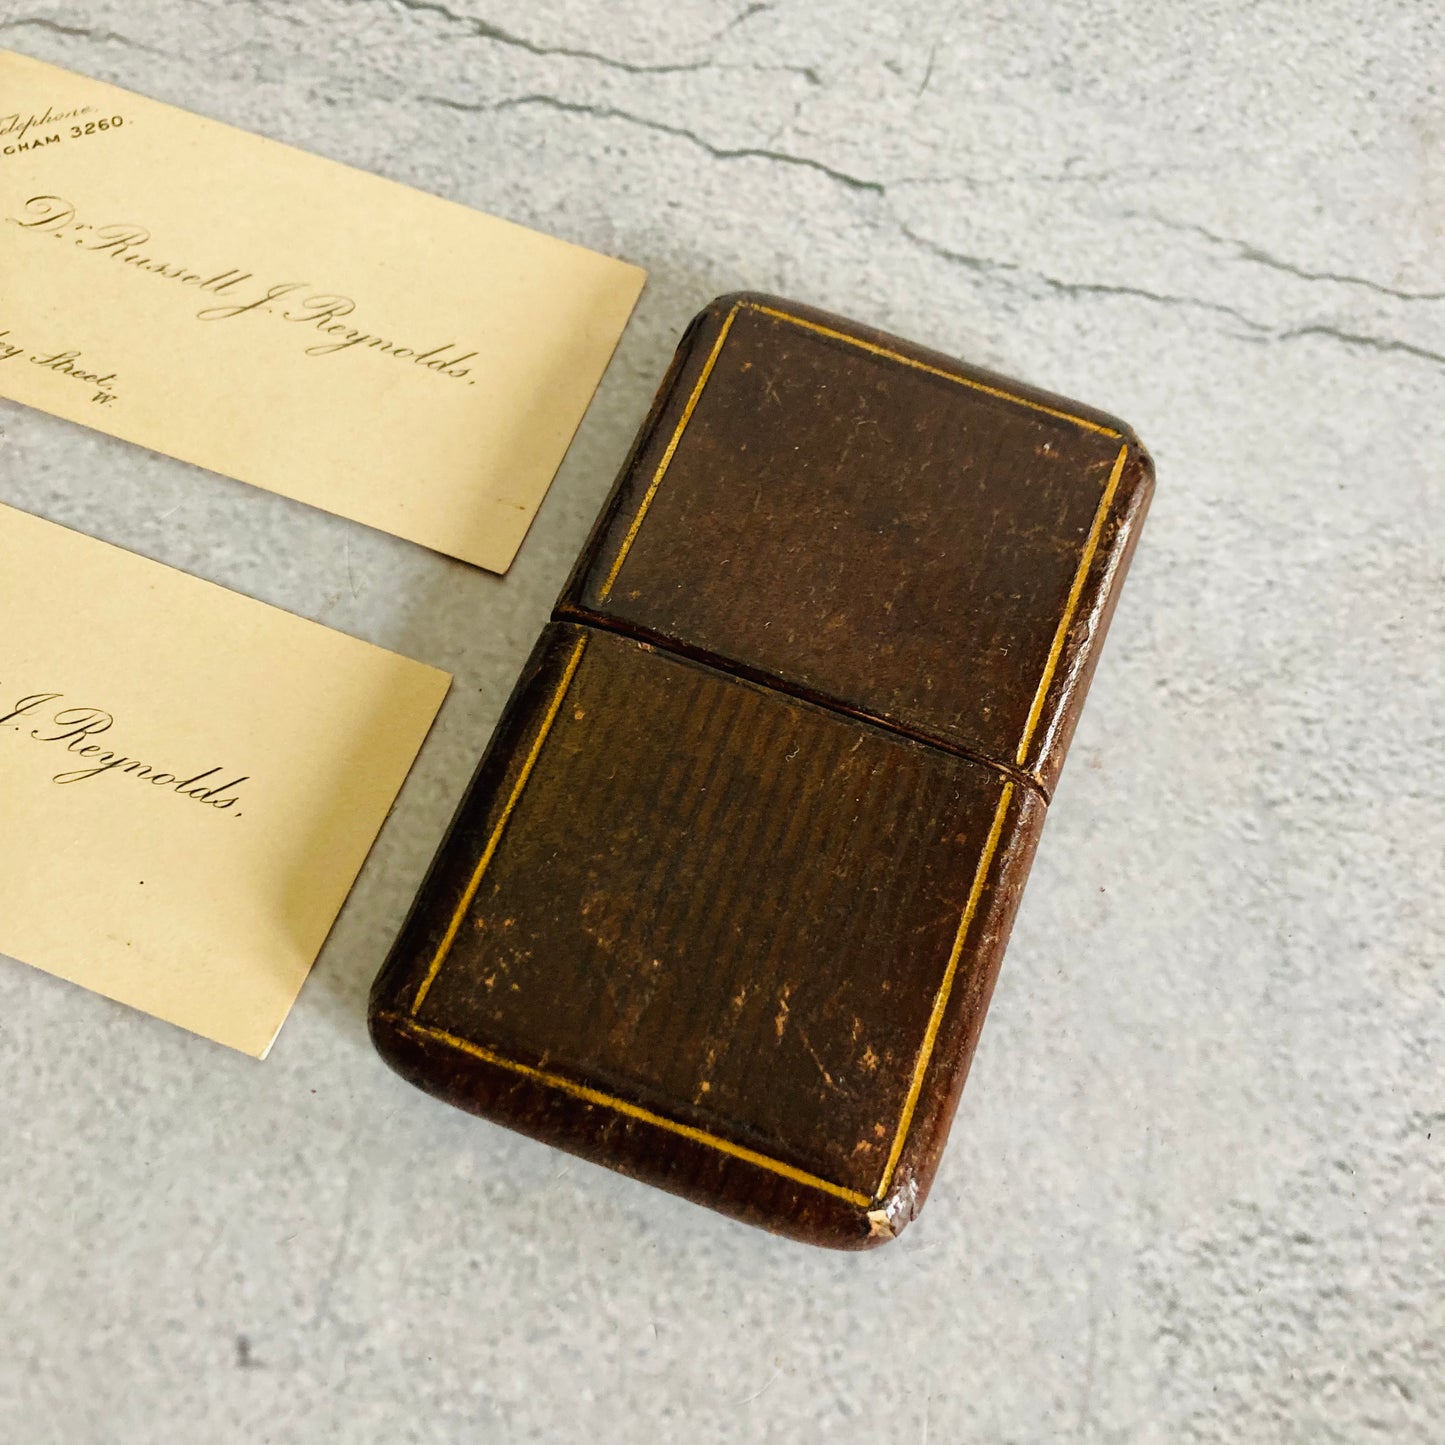 elephone.
GHAM 3260.
Dr. Russell J. Reynolds.
ey Street.
W.
J. Reynolds.